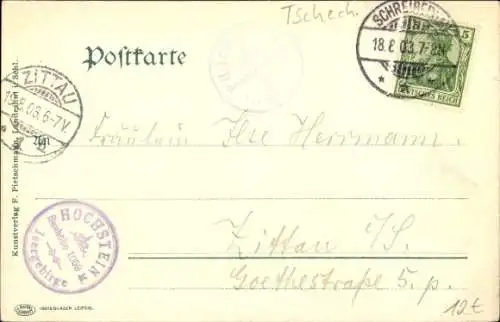 Tschech.
Postkarte
SCHREIBERHAU
18.8.03.7-8N.
5
DEUTSCHES REICH
ZITTAU
03.6-7V.
An
Fräulein Ilse Herrmann.
Zittau i/S.
Goethestraße 5. p.
HOCHSTEIN
1058 M
Isergebirge
Kunstverlag F. Pietschmann
12€